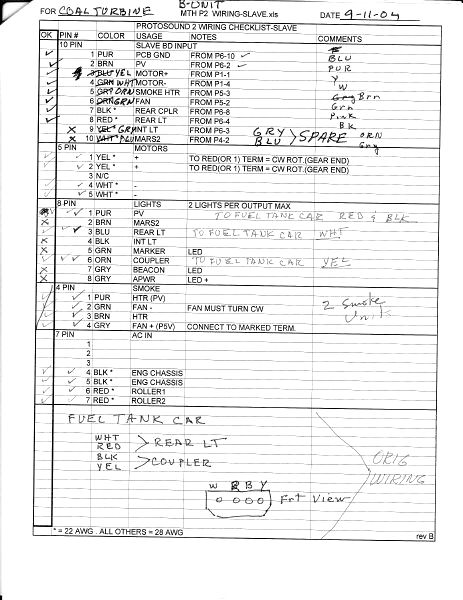 FOR COAL TURBINE B-UNIT DATE 9-11-04
MTH P2 WIRING-SLAVE.xls
PROTOSOUND 2 WIRING CHECKLIST-SLAVE
OK PIN # COLOR USAGE NOTES COMMENTS
10 PIN SLAVE BD INPUT
1 PUR PCB GND FROM P6-10 ✓ BLU
2 BRN PV FROM P6-2 ✓ PUR
3 BLU YEL MOTOR+ FROM P1-1 Y
4 GRN WHT MOTOR- FROM P1-4 W
5 GRY ORN SMOKE HTR FROM P5-3 Gry Brn
6 ORN GRN FAN FROM P5-2 Grn
7 BLK * REAR CPLR FROM P6-8 Pink
8 RED * REAR LT FROM P6-4 BK
9 YEL * GRY INT LT FROM P6-3 GRY SPARE ORN
10 WHT * BLU MARS2 FROM P4-2 BLU Gry
5 PIN MOTORS
1 YEL * + TO RED(OR 1) TERM = CW ROT.(GEAR END)
2 YEL * + TO RED(OR 1) TERM = CW ROT.(GEAR END)
3 N/C
4 WHT * -
5 WHT * -
8 PIN LIGHTS 2 LIGHTS PER OUTPUT MAX
1 PUR PV TO FUEL TANK CAR RED & BLK
2 BRN MARS2
3 BLU REAR LT TO FUEL TANK CAR WHT
4 BLK INT LT
5 GRN MARKER LED
6 ORN COUPLER TO FUEL TANK CAR YEL
7 GRY BEACON LED
8 GRY APWR LED +
4 PIN SMOKE
1 PUR HTR (PV) 2 Smoke
2 GRN FAN - FAN MUST TURN CW Unit
3 BRN HTR
4 GRY FAN + (P5V) CONNECT TO MARKED TERM.
7 PIN AC IN
1
2
3
4 BLK * ENG CHASSIS
5 BLK * ENG CHASSIS
6 RED * ROLLER1
7 RED * ROLLER2
FUEL TANK CAR
WHT
RED > REAR LT
BLK
YEL > COUPLER
ORIG
WIRING
W R B Y
Frt View
* = 22 AWG . ALL OTHERS = 28 AWG rev B